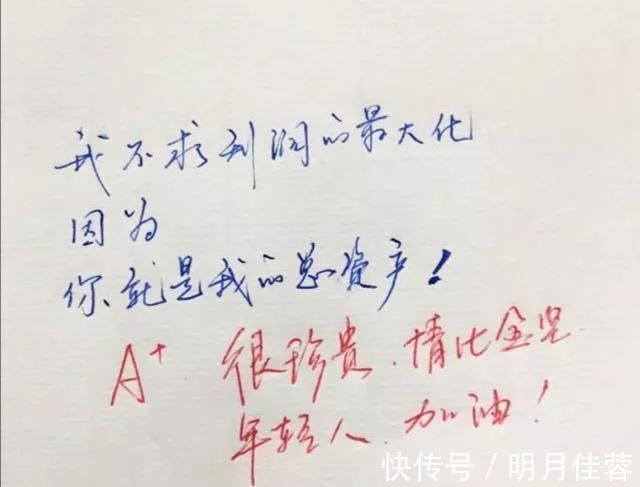 我不求利润的最大化
因为
你就是我的总资产！
A+ 很珍贵.情比金坚
年轻人.加油！
快传号／明月佳蓉